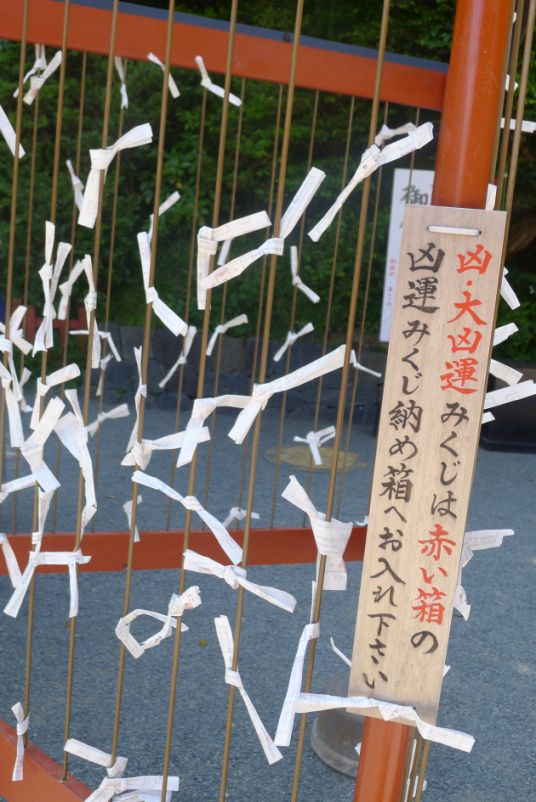 凶・大凶運みくじは赤い箱の
凶運みくじ納め箱へお入れ下さい
御